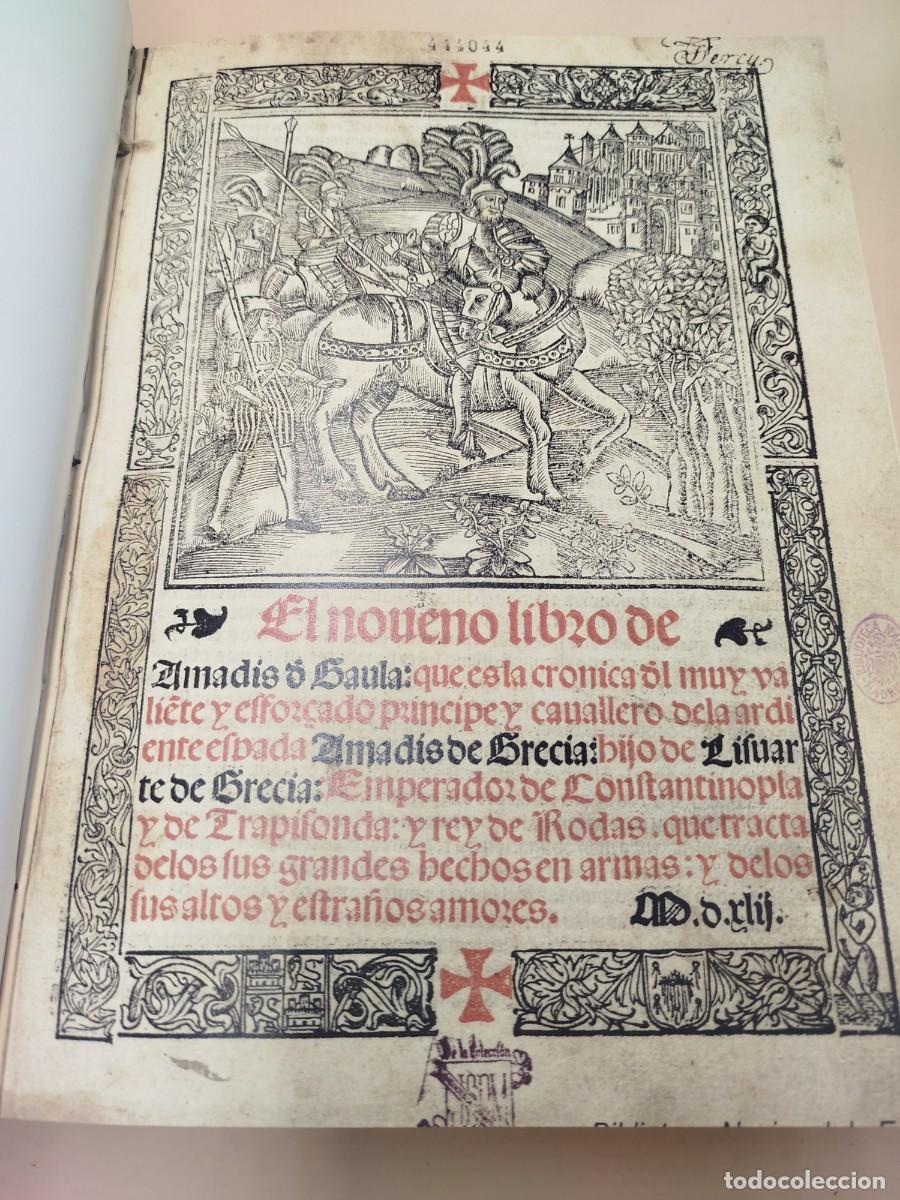 444044
Percy.
El noueno libro de
Amadis đ Gaula: que es la cronica dl muy va
liẽte y esforçado principe y cauallero dela ardi
ente espada Amadis de Grecia: hijo de Lisuar
te de Grecia: Emperador de Constantinopla
y de Trapisonda: y rey de Rodas. que tracta
delos sus grandes hechos en armas: y delos
sus altos y estraños amores. M.d.xlij.
De la Colección
todocoleccion